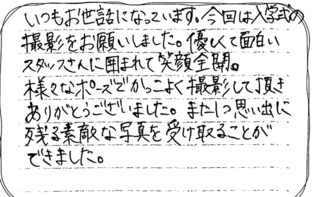 いつもお世話になっています。今回は入学式の
撮影をお願いしました。優しくて面白い
スタッフさんに囲まれて笑顔全開。
様々なポーズでかっこよく撮影して頂き
ありがとうございました。また1つ思い出に
残る素敵な写真を受け取ることが
できました。